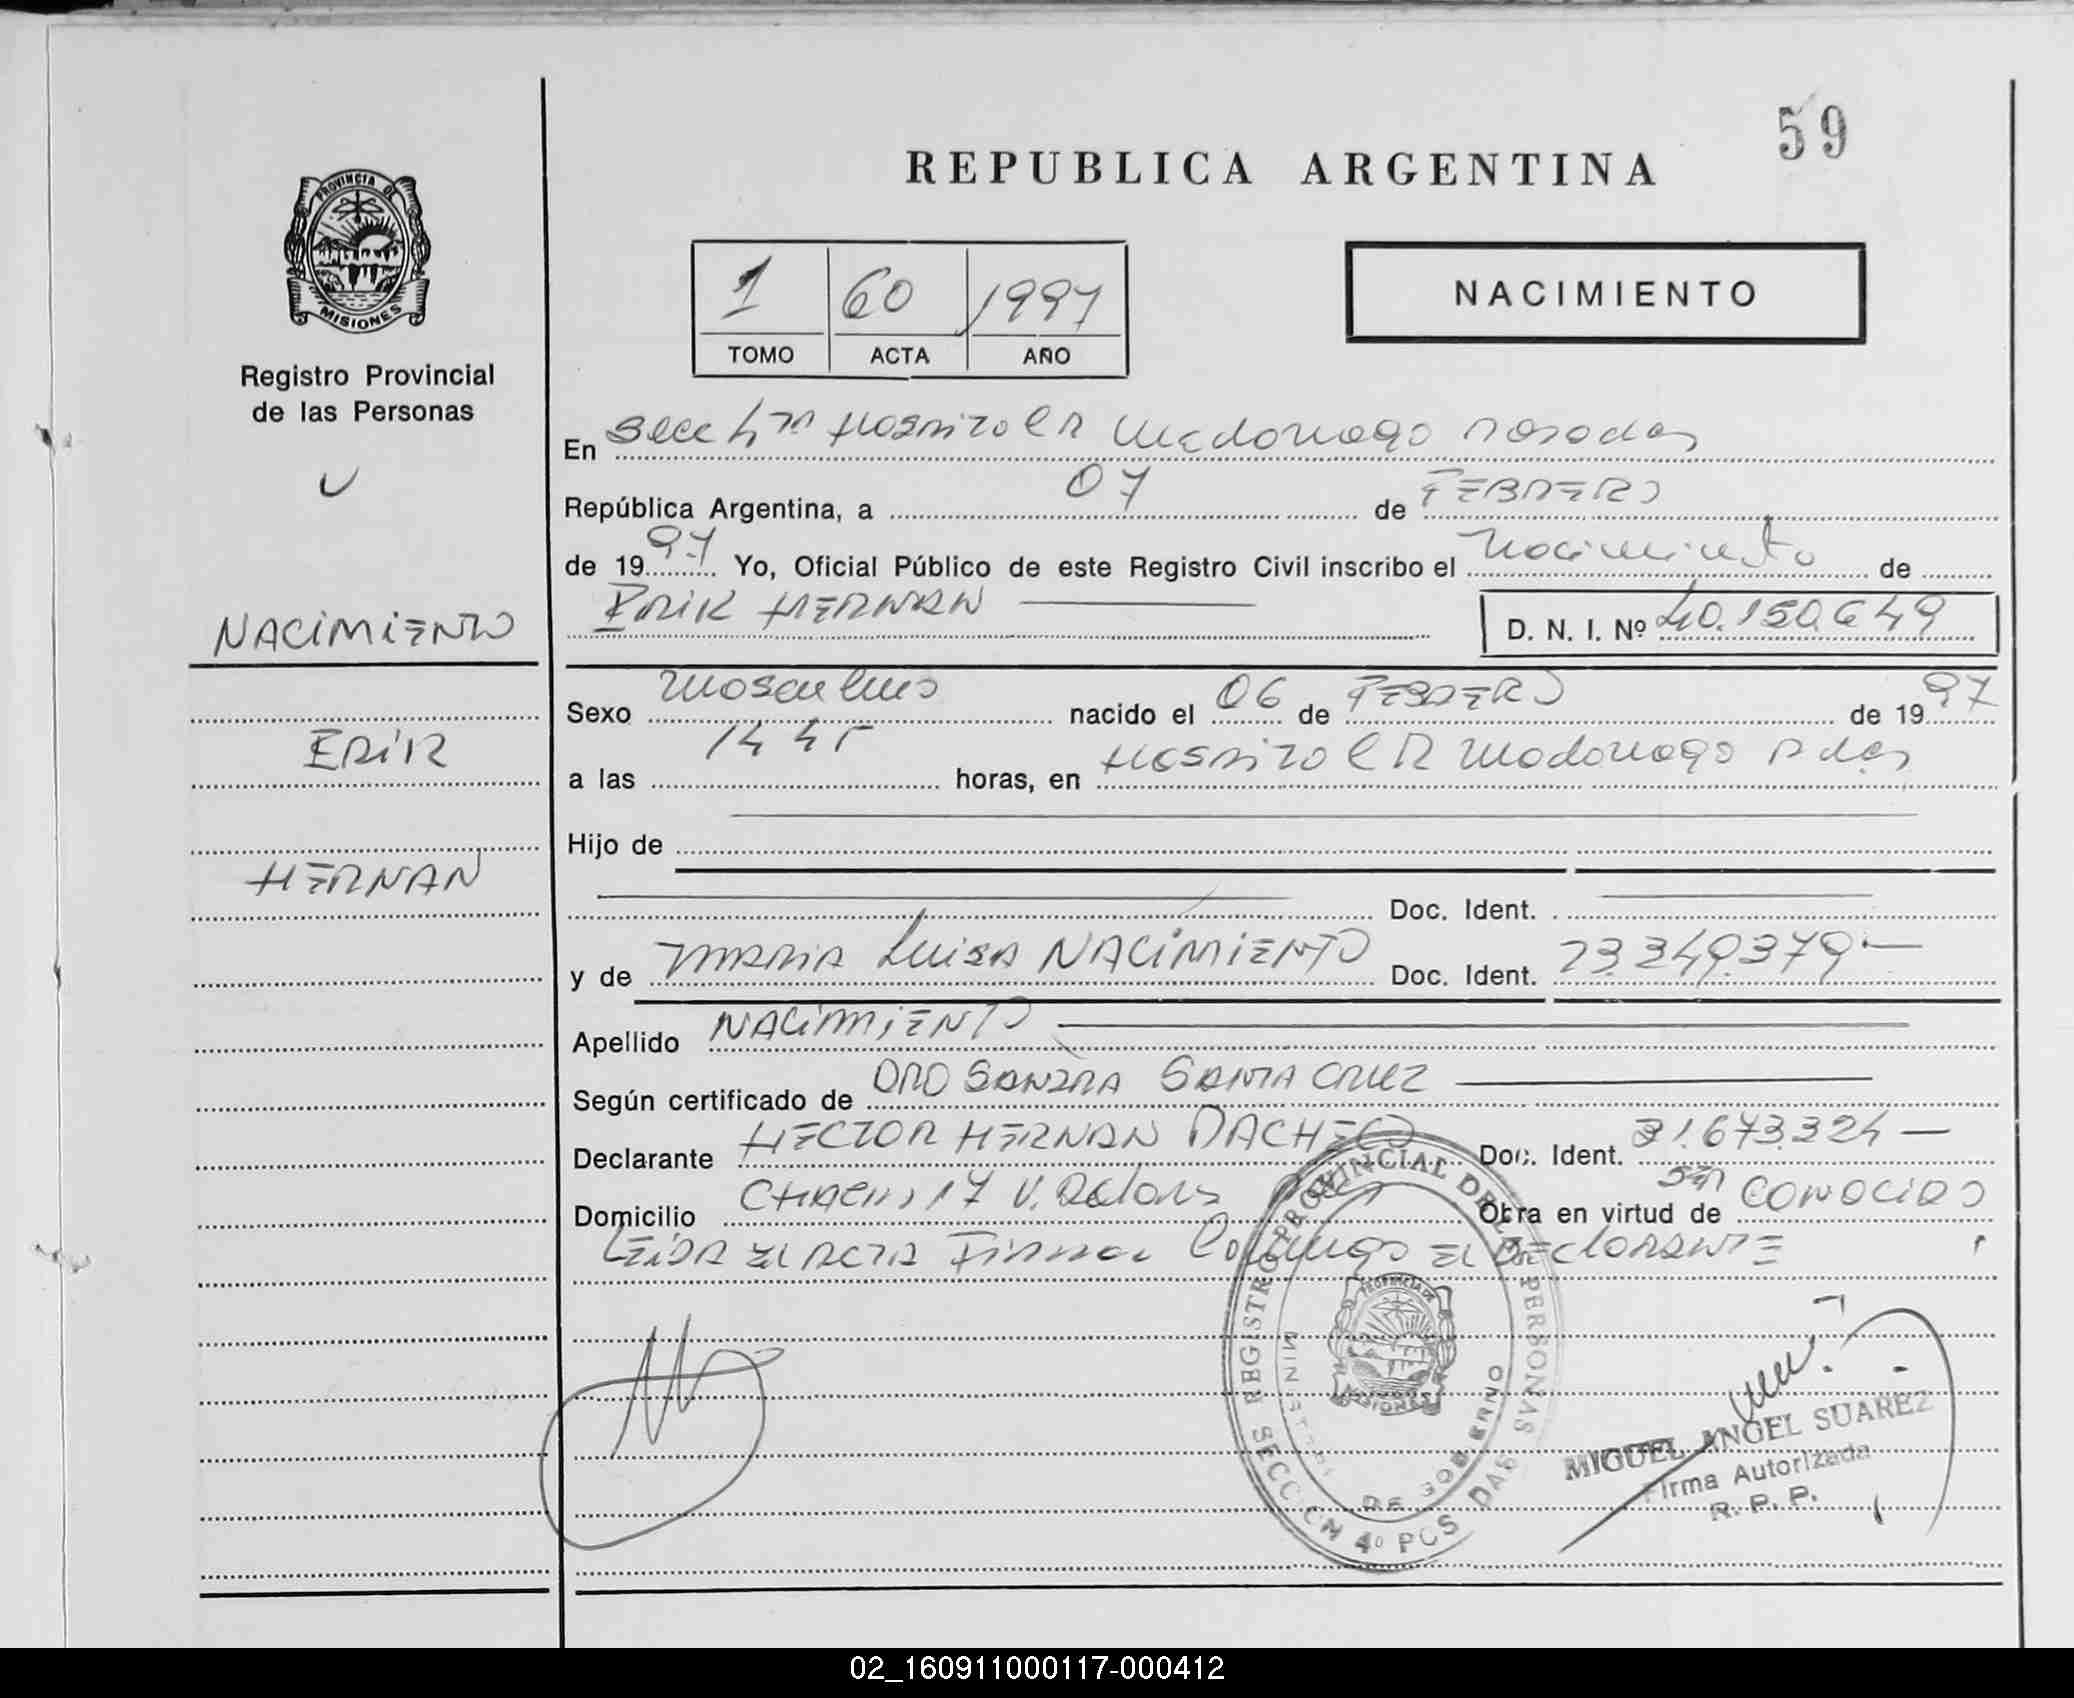 59
REPUBLICA ARGENTINA
PROVINCIA DE
MISIONES
Registro Provincial
de las Personas
1 60 1997
TOMO ACTA AÑO
NACIMIENTO
En Secc 4ta Hospital R Madariaga Posadas
República Argentina, a 07 de FEBRERO
de 1997 Yo, Oficial Público de este Registro Civil inscribo el Nacimiento de
ERIK HERNAN
D. N. I. Nº 40.150.649
NACIMIENTO
ERIK
HERNAN
Sexo masculino nacido el 06 de FEBRERO de 1997
a las 14 45 horas, en Hospital R Madariaga Pdas
Hijo de
Doc. Ident.
y de MARIA LUISA NACIMIENTO Doc. Ident. 23.349.379
Apellido NACIMIENTO
Según certificado de DRA SANDRA SANTA CRUZ
Declarante HECTOR HERNAN PACHECO Doc. Ident. 31.673.324
Domicilio CHACRA 17 Obra en virtud de SER CONOCIDO
LEIDA EL ACTA FIRMA Conmigo EL DECLARANTE
REGISTRO PROVINCIAL DE LAS PERSONAS
MINISTERIO DE GOBIERNO
SECCION 4º PCS DAS
PROVINCIA DE
MISIONES
MIGUEL ANGEL SUAREZ
Firma Autorizada
R. P. P.
02_160911000117-000412